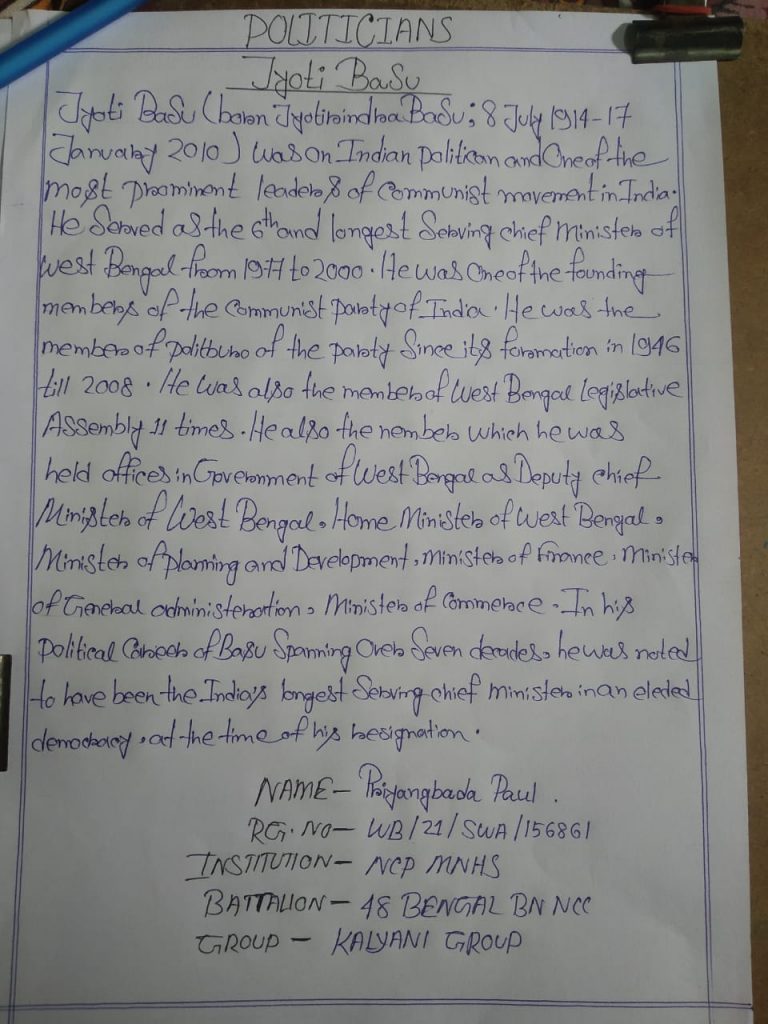 POLITICIANS
Jyoti Basu
Jyoti Basu (born Jyotirindra Basu; 8 July 1914-17
January 2010) was on Indian politican and One of the
most prominent leaders of communist movement in India.
He Served as the 6th and longest Serving chief Minister of
west Bengal from 1977 to 2000. He was One of the founding
members of the Communist Party of India. He was the
member of politburo of the party Since its formation in 1946
till 2008. He was also the member of West Bengal legislative
Assembly 11 times. He also the nember which he was
held offices in Government of West Bengal as Deputy chief
Minister of West Bengal, Home Minister of West Bengal,
Minister of planning and Development, Minister of finance, Minister
of General administeration, Minister of Commerce. In his
political Career of Basu Spanning Over Seven decades, he was noted
to have been the India's longest Serving chief minister in an eleded
democracy, at the time of his resignation.
NAME- Priyangbada Paul.
RG. NO- WB/21/SWA/156861
INSTITUTION- NCP MNHS
BATTALION- 48 BENGAL BN NCC
GROUP - KALYANI GROUP